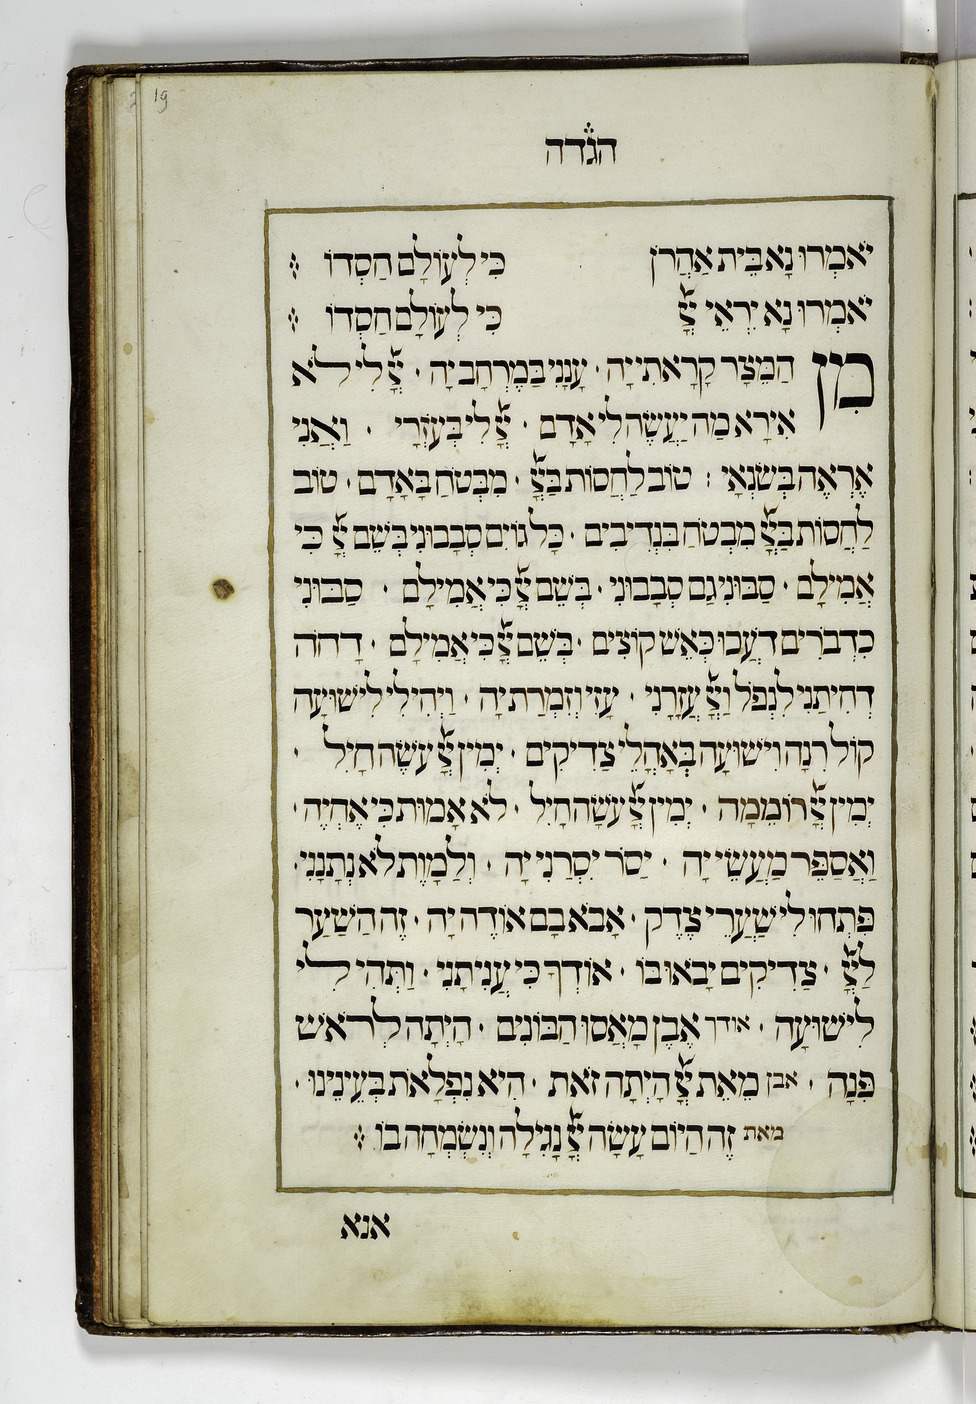 19
הגדה
יֹאמְרוּ נָא בֵּית אַהֲרֹן כִּי לְעוֹלָם חַסְדּוֹ
יֹאמְרוּ נָא יִרְאֵי יְיָ כִּי לְעוֹלָם חַסְדּוֹ
מִן הַמֵּצַר קָרָאתִי יָּה · עָנָנִי בַּמֶּרְחָב יָהּ · יְיָ לִי לֹא
אִירָא מַה יַּעֲשֶׂה לִי אָדָם · יְיָ לִי בְּעֹזְרָי · וַאֲנִי
אֶרְאֶה בְּשֹׂנְאָי : טוֹב לַחֲסוֹת בַּיְיָ · מִבְּטֹחַ בָּאָדָם · טוֹב
לַחֲסוֹת בַּיְיָ מִבְּטֹחַ בִּנְדִיבִים · כָּל גּוֹיִם סְבָבוּנִי בְּשֵׁם יְיָ כִּי
אֲמִילַם · סַבּוּנִי גַם סְבָבוּנִי · בְּשֵׁם יְיָ כִּי אֲמִילַם · סַבּוּנִי
כִדְבֹרִים דֹּעֲכוּ כְּאֵשׁ קוֹצִים · בְּשֵׁם יְיָ כִּי אֲמִילַם · דָּחֹה
דְחִיתַנִי לִנְפֹּל וַיְיָ עֲזָרָנִי · עָזִּי וְזִמְרָת יָהּ · וַיְהִי לִי לִישׁוּעָה
קוֹל רִנָּה וִישׁוּעָה בְּאָהֳלֵי צַדִּיקִים · יְמִין יְיָ עֹשָׂה חָיִל ·
יְמִין יְיָ רוֹמֵמָה · יְמִין יְיָ עֹשָׂה חָיִל · לֹא אָמוּת כִּי אֶחְיֶה ·
וַאֲסַפֵּר מַעֲשֵׂי יָהּ · יַסֹּר יִסְּרַנִּי יָּהּ · וְלַמָּוֶת לֹא נְתָנָנִי ·
פִּתְחוּ לִי שַׁעֲרֵי צֶדֶק · אָבֹא בָם אוֹדֶה יָהּ · זֶה הַשַּׁעַר
לַיְיָ · צַדִּיקִים יָבֹאוּ בוֹ · אוֹדְךָ כִּי עֲנִיתָנִי · וַתְּהִי לִי
לִישׁוּעָה · אודך אֶבֶן מָאֲסוּ הַבּוֹנִים · הָיְתָה לְרֹאשׁ
פִּנָּה · אבן מֵאֵת יְיָ הָיְתָה זֹאת · הִיא נִפְלָאֹת בְּעֵינֵינוּ ·
מאת זֶה הַיּוֹם עָשָׂה יְיָ נָגִילָה וְנִשְׂמְחָה בוֹ
אנא